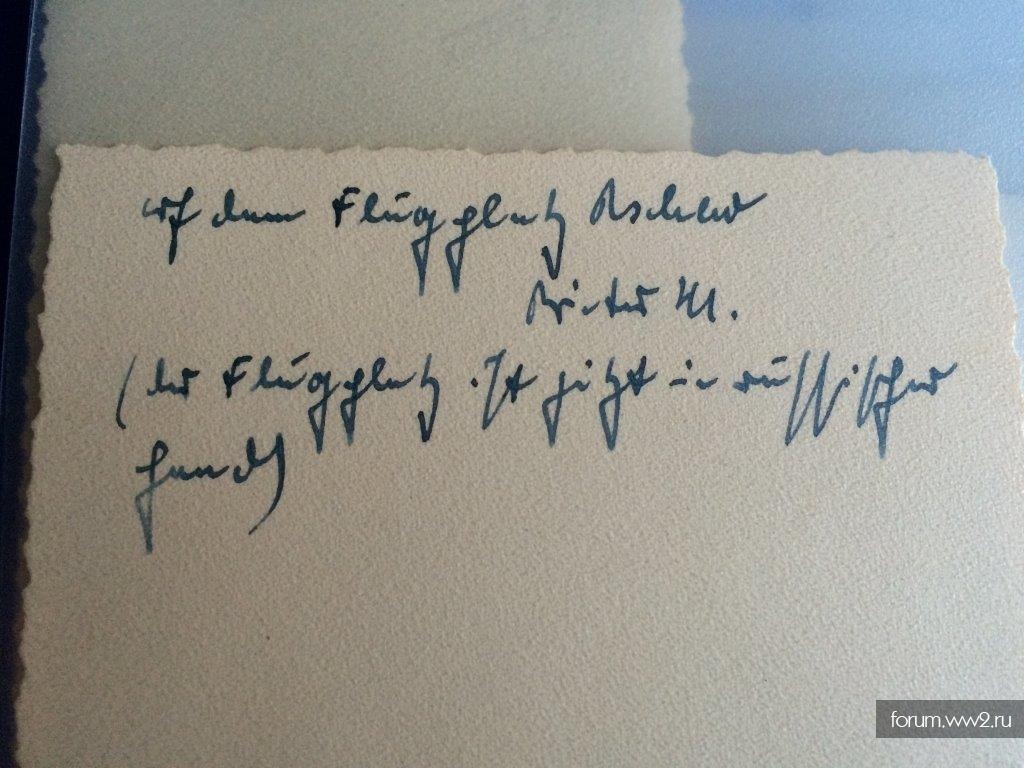 auf dem Flugplatz
Winter 41.
(der Flugplatz ist jetzt in russischer
Hand)
forum.ww2.ru